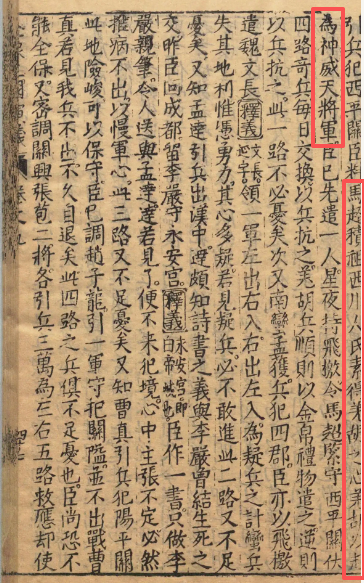 引兵犯西平關臣料馬超積祖西川人氏素得胡之心以
為神威天將軍臣已先遣一人星夜持飛檄令馬超緊守西平關伏
四路奇兵每日交換以兵抗之羗胡兵順則以金帛禮物遣之逆則
以兵抗之此一路不必憂矣次又南蠻孟獲兵犯四郡臣亦以飛檄
遣魏文長釋義文長延字領一軍左出右入右出左入為疑兵之計蠻兵
失其地利惟愚勇力其心多疑若見疑兵必不敢進此二路又不足
憂矣又知孟達引兵出漢中達頗知詩書之義與李嚴曾結生死之
交昨臣回成都留李嚴守永安宮釋義永安宮即白帝城也臣作一書只做李
嚴親筆令人送與孟達達若見了便不來犯境心中主張不定必然
推病不出以慢軍心此三路又不足憂矣又知曹真引兵犯陽平關
此地險峻可以保守臣已調趙子龍引一軍守把關隘並不出戰曹
真若見我兵不出不久自退矣此四路之兵俱不足憂也臣尚恐不
能全保又密調關興張苞二將各引兵三萬為左右五路救應却使